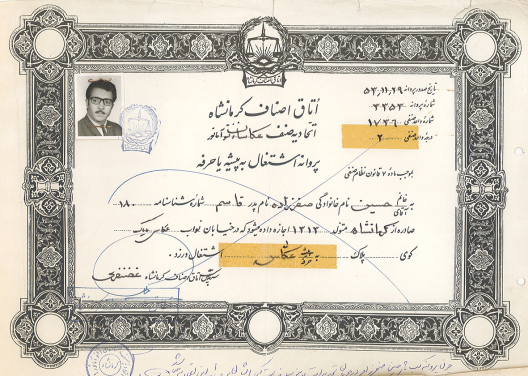 تاریخ صدور پروانه ۵۳,۱۱,۲۹
شماره پروانه ۳۳۵۳
شماره واحد صنفی ۱۷۳۶
درجه واحد صنفی ۲
اتاق اصناف کرمانشاه
اتحادیه صنف عکاسان و آماتور
پروانه اشتغال به پیشه یا حرفه
بموجب ماده ۷ قانون نظام صنفی
به خانم آقای حسین نام خانوادگی صفرزاده نام پدر قاسم شماره شناسنامه ۱۸۰
صادره از کرمانشاه متولد ۱۳۱۳ اجازه داده میشود که در خیابان نواب عکاسی
کوی پلاک به پیشه حرفه عکاسی اشتغال ورزد.
اتاق اصناف کرمانشاه غضنفری